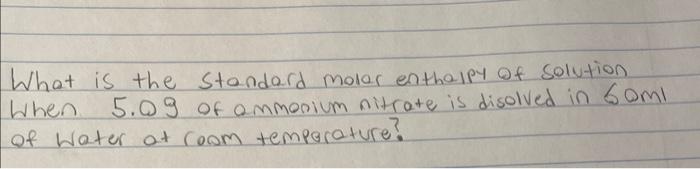 What is the standard molar enthalpy of solution
When 5.0g of ammonium nitrate is disolved in 60ml
of water at room temperature?